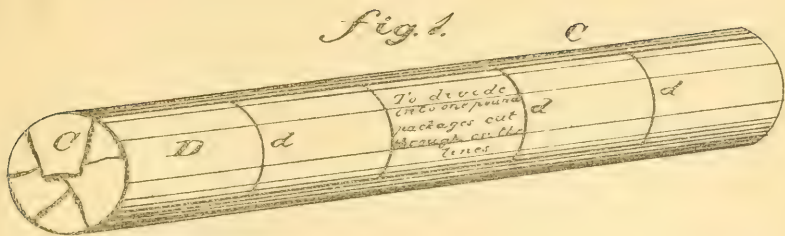 fig. 1.
C
To divide
into one pound
packages cut
through on the
lines
d
d
C
D
d